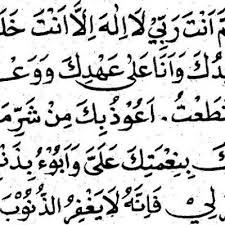 مَّ اَنْتَ رَبِّيْ لَا اِلٰهَ اِلَّا اَنْتَ خَلَ
دُكَ وَاَنَا عَلٰى عَهْدِكَ وَوَعْ
تَطَعْتُ. اَعُوْذُ بِكَ مِنْ شَرِّ مَ
كَ بِنِعْمَتِكَ عَلَيَّ وَاَبُوْءُ بِذَنْ
لِيْ فَاِنَّهُ لَا يَغْفِرُ الذُّنُوْبَ